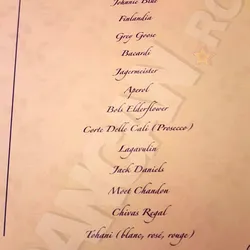 Johnnie Blue
Finlandia
Grey Goose
Bacardi
Jagermeister
Aperol
Bols Elderflower
Corte Delle Cali (Prosecco)
Lagavulin
Jack Daniels
Moet Chandon
Chivas Regal
Tohani (blanc, rosé, rouge)